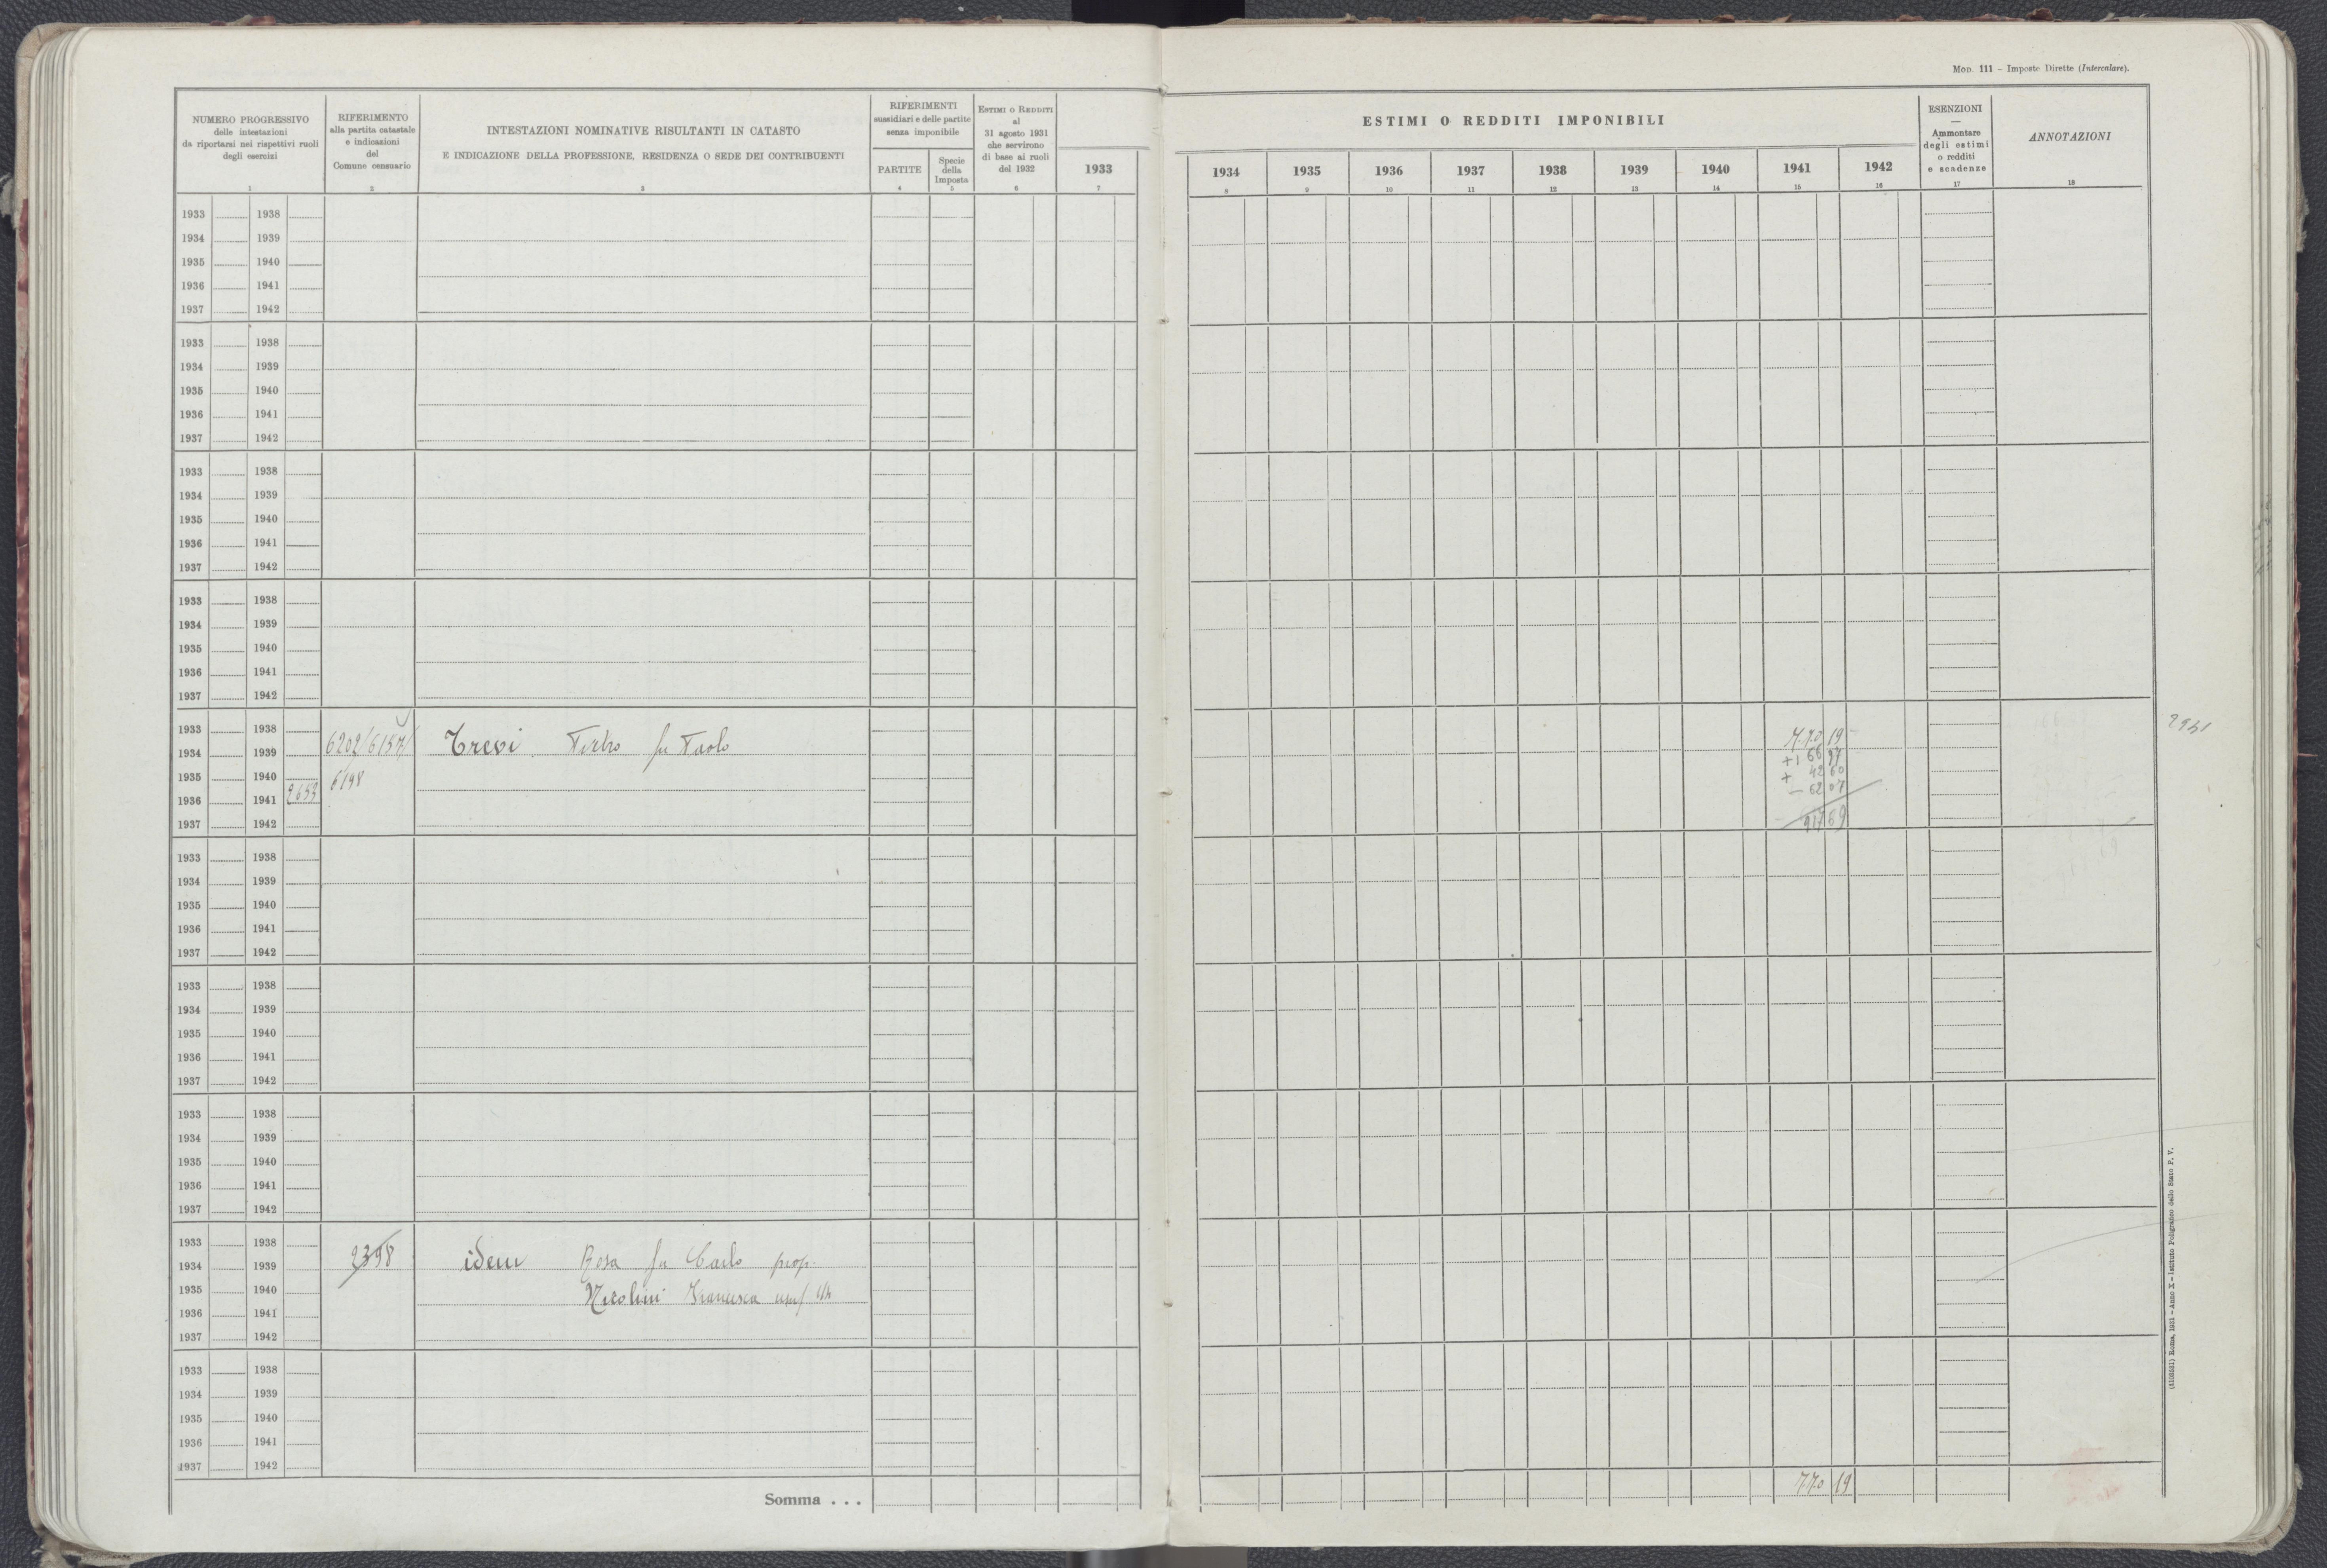 Mod. 111 – Imposte Dirette (Intercalare).
NUMERO PROGRESSIVO
delle intestazioni
da riportarsi nei rispettivi ruoli
degli esercizi
1
RIFERIMENTO
alla partita catastale
e indicazioni
del
Comune censuario
2
INTESTAZIONI NOMINATIVE RISULTANTI IN CATASTO
E INDICAZIONE DELLA PROFESSIONE, RESIDENZA O SEDE DEI CONTRIBUENTI
3
RIFERIMENTI
sussidiari e delle partite
senza imponibile
PARTITE
4
Specie
della
Imposta
5
Estimi o Redditi
al
31 agosto 1931
che servirono
di base ai ruoli
del 1932
6
1933
7
ESTIMI O REDDITI IMPONIBILI
1934 1935 1936 1937 1938 1939 1940 1941 1942
8 9 10 11 12 13 14 15 16
ESENZIONI
—
Ammontare
degli estimi
o redditi
e scadenze
17
ANNOTAZIONI
18
1933 1938
1934 1939
1935 1940
1936 1941
1937 1942
1933 1938
1934 1939
1935 1940
1936 1941
1937 1942
1933 1938
1934 1939
1935 1940
1936 1941
1937 1942
1933 1938
1934 1939
1935 1940
1936 1941
1937 1942
1933 1938
1934 1939 6202/6157/ Trevi Pietro fu Paolo 770 19
1935 1940 6198 + 42 60
1936 1941 2653 – 62 07
1937 1942
1933 1938
1934 1939
1935 1940
1936 1941
1937 1942
1933 1938
1934 1939
1935 1940
1936 1941
1937 1942
1933 1938
1934 1939
1935 1940
1936 1941
1937 1942
1933 1938
1934 1939 2398 idem Rosa fu Carlo prop.
1935 1940 Nicolini Francesca usuf
1936 1941
1937 1942
1933 1938
1934 1939
1935 1940
1936 1941
1937 1942
Somma . . . 770 19
Roma, 1931 – Anno X – Istituto Poligrafico dello Stato P. V.